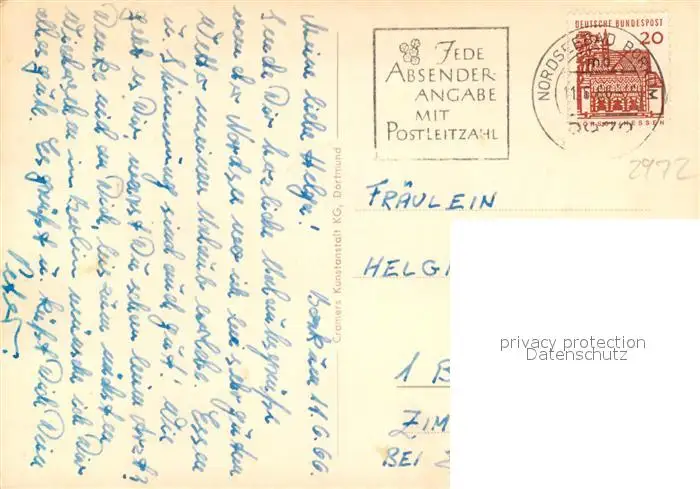 Borkum 11.6.66
Meine liebe Helga!
Sende Dir herzliche Urlaubsgrüße
von der Nordsee wo ich bei sehr gutem
Wetter meinen Urlaub verlebe. Essen
u. Stimmung sind auch gut! Wie
geht es Dir, warst Du schon beim Arzt?
Denke viel an Dich, bis zum nächsten
Wiedersehen in Berlin wünsche ich Dir
alles gute. Es grüßt u. küßt Dich Dein
Peter.
Cramers Kunstanstalt KG, Dortmund
JEDE
ABSENDER-
ANGABE
MIT
POSTLEITZAHL
NORDSEEBAD BORKUM
DEUTSCHE BUNDESPOST
20
LORSCH/HESSEN
2972
FRÄULEIN
HELG
1 B
ZIM
BEI
privacy protection
Datenschutz